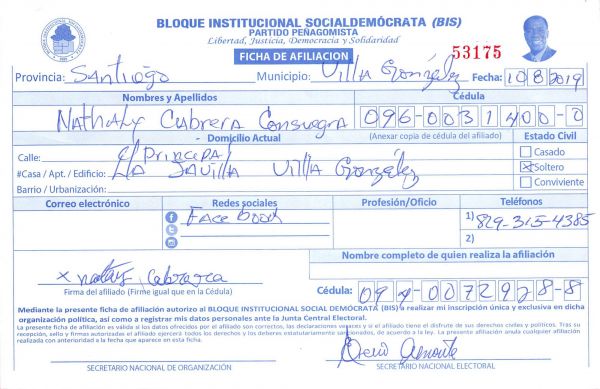 BLOQUE INSTITUCIONAL SOCIALDEMÓCRATA (BIS)
PARTIDO PEÑAGOMISTA
Libertad, Justicia, Democracia y Solidaridad
FICHA DE AFILIACION
53175
Provincia: Santiago Municipio: Villa González Fecha: 10 8 2019
Nombres y Apellidos Cédula
Nathaly Cabrera Consuegra 096-0031400-0
Domicilio Actual (Anexar copia de cédula del afiliado) Estado Civil
Calle: c/ Principal Casado
#Casa / Apt. / Edificio: La Villa González Soltero
Barrio / Urbanización: Conviviente
Correo electrónico Redes sociales Profesión/Oficio Teléfonos
Face book 1) 829-315-4385
2)
Nombre completo de quien realiza la afiliación
x Cabrera
Firma del afiliado (Firme igual que en la Cédula) Cédula: 094-0072928-8
Mediante la presente ficha de afiliación autorizo al BLOQUE INSTITUCIONAL SOCIAL DEMÓCRATA (BIS) a realizar mi inscripción única y exclusiva en dicha
organización política, así como a registrar mis datos personales ante la Junta Central Electoral.
La presente ficha de afiliación es válida si los datos ofrecidos por el afiliado son correctos, las declaraciones veraces y si el afiliado tiene el disfrute de sus derechos civiles y políticos. Tras su
recepción, sello y firmas autorizadas el afiliado ejercerá todos los derechos y los deberes estatutariamente sancionados, de acuerdo a la ley. La presente ficha anula cualquier afiliación
realizada con anterioridad a la fecha que aparece en esta ficha.
SECRETARIO NACIONAL DE ORGANIZACIÓN SECRETARIO NACIONAL ELECTORAL